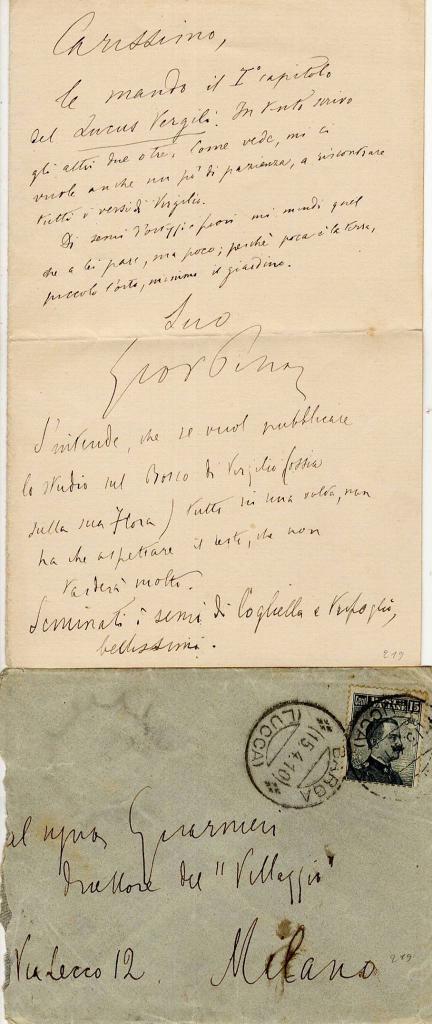 Carissimo,
le mando il Iº capitolo
del Lucus Vergili. Intanto scrivo
gli altri due o tre. Come vede, mi ci
vuole anche un pò di pazienza, a riscontrare
tutti i versi di Virgilio.
Di semi d'ortaggi e fiori mi mandi quel
che a lei pare, ma poco; perchè poca è la terra,
piccolo l'orto, minimo il giardino.
Suo
S'intende, che se vuol pubblicare
lo studio sul Bosco di Vergilio (ossia
sulla sua Flora) tutto in una volta, non
ha che aspettare il resto, che non
tarderà molto.
Seminati i semi di e trifoglio,
bellissimi.
219
BARGA
(LUCCA)
15.4.10
15
al signor Guarnieri
direttore del "Villaggio"
Via Lecco 12. Milano
219